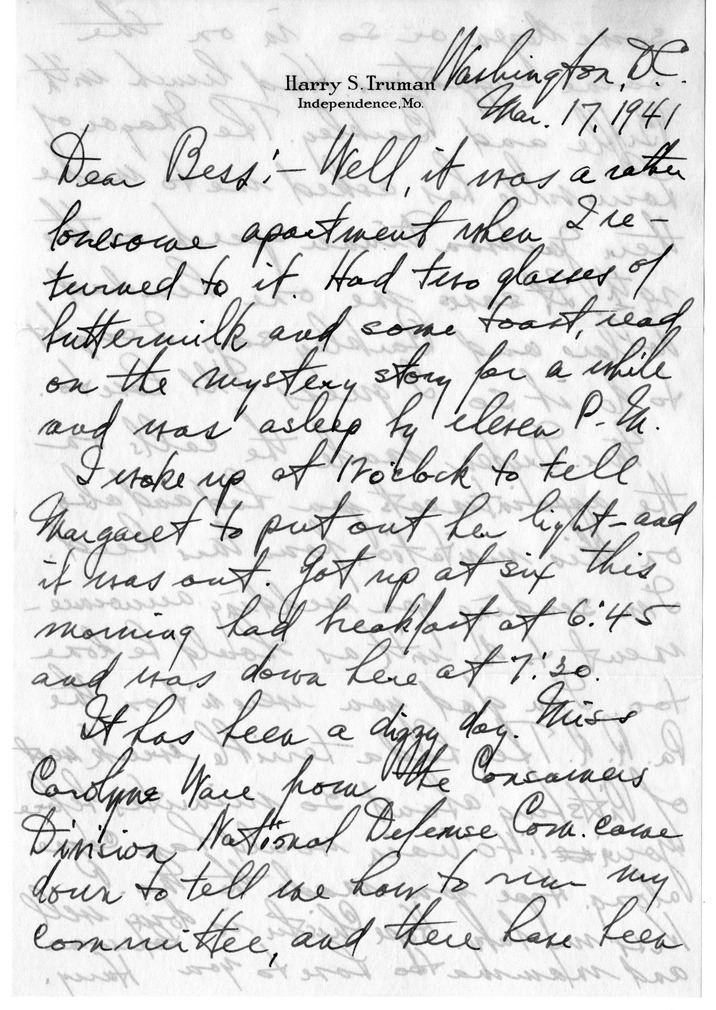 Harry S. Truman
Independence, Mo.
Washington, D.C.
Mar. 17, 1941
Dear Bess:— Well, it was a rather
lonesome apartment when I re-
turned to it. Had two glasses of
buttermilk and some toast, read
on the mystery story for a while
and was asleep by eleven P.M.
I woke up at 12 o'clock to tell
Margaret to put out her light—and
it was out. Got up at six this
morning had breakfast at 6:45
and was down here at 7:30.
It has been a dizzy day. Miss
Carolyne Ware from the Consumers
Division National Defense Com. came
down to tell me how to run my
committee, and there have been